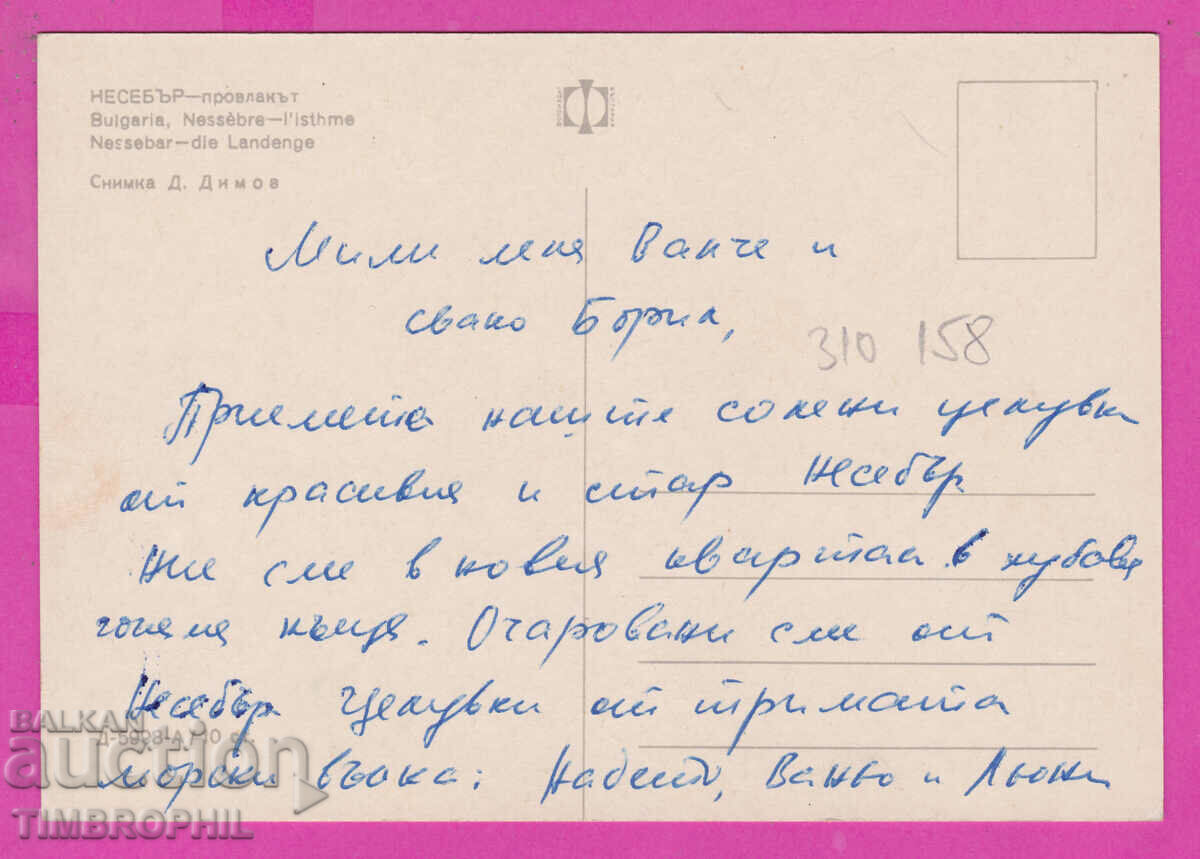 НЕСЕБЪР—провлакът
Bulgaria, Nessèbre—l'isthme
Nessebar—die Landenge
Снимка Д. Димов
Мили леля Ванче и
свако Борил,
310 158
Приемете нашите солени целувки
от красивия и стар Несебър
Ние сме в новия квартал в хубава
голяма къща. Очаровани сме от
Несебър Целувки от тримата
морски вълка: Ваньо и Льони
Д-5998-А
BALKAN
auction
TIMBROPHIL